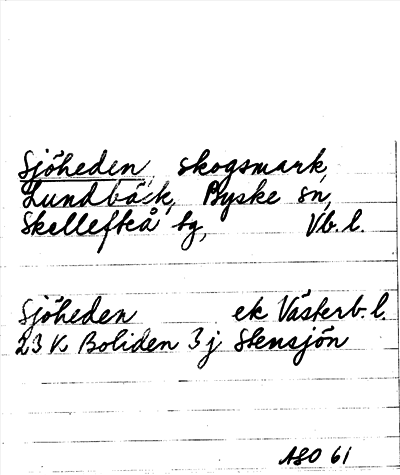 Sjöheden, skogsmark,
Lundbäck, Byske sn,
Skellefteå tg, Vb. l.
Sjöheden ek Västerb. l.
23 K Boliden 3 j Stensjön
ASO 61